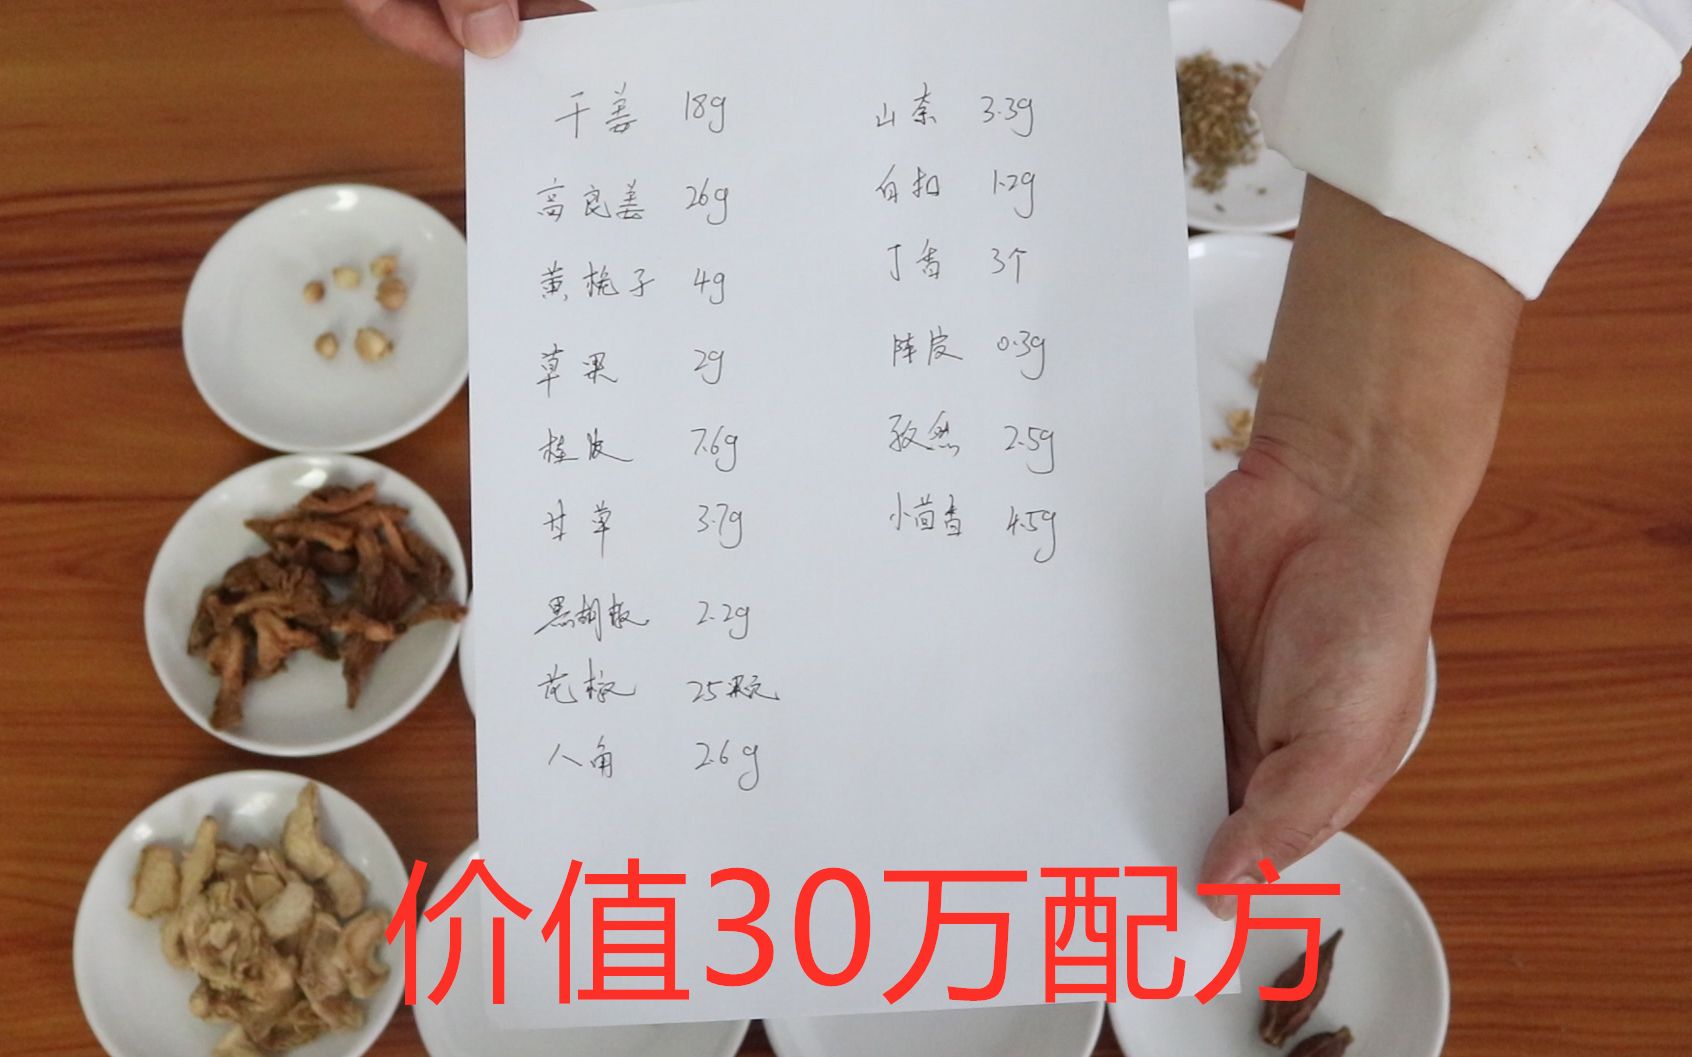 干姜 18g
高良姜 26g
黄桅子 4g
草果 2g
桂皮 7.6g
甘草 3.7g
黑胡椒 2.2g
花椒 25颗
八角 2.6g
山柰 3.3g
白扣 1.2g
丁香 3个
陈皮 0.3g
孜然 2.5g
小茴香 4.5g
价值30万配方